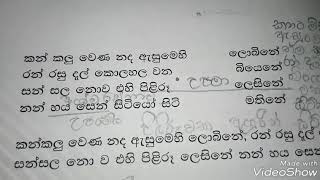 කන් කලු වෙණ නද ඇසුමෙහි ලොබිනේ
රන් රසු දුල් කොලහල වන බියෙනේ
සන් සල නොව එහි පිළිරූ ලෙසිනේ
නන් හය සෙන් සිටියෝ සිටි මතිනේ
උපමා
කන්කලු වෙණ නද ඇසුමෙහි ලොබිනේ, රන් රසු දුල්
සන්සල නො ව එහි පිළිරූ ලෙසිනේ නන් හය සෙන්
Made with
VideoShow